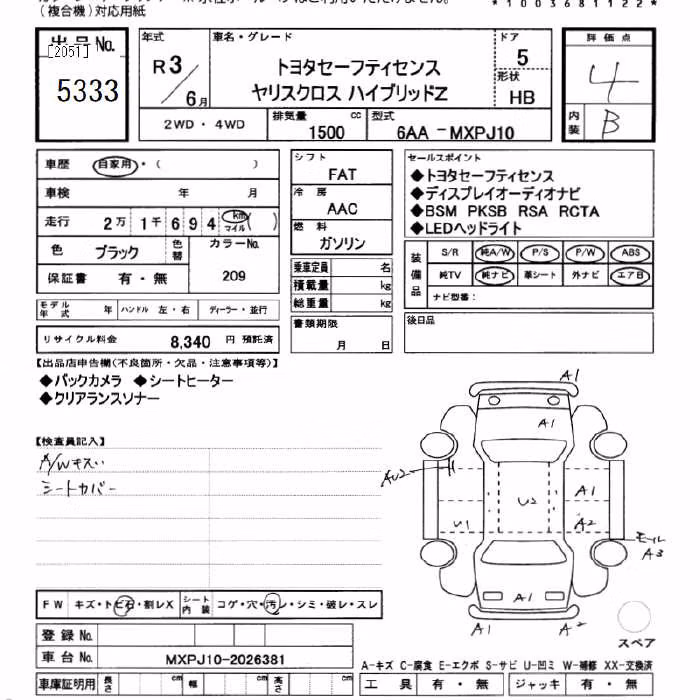 (複合機)対応用紙
*1003681122*
出品No.
[2051]
5333
年式
R3/6月
車名・グレード
トヨタセーフティセンス
ヤリスクロス ハイブリッドZ
ドア
5
形状
HB
評価点
4
内装
B
2WD・4WD
排気量
1500
cc
型式
6AA-MXPJ10
車歴
自家用・( )
車検
年 月
走行
2万1千694
km
マイル
( )
色
ブラック
色替
カラーNo.
209
保証書
有・無
シフト
FAT
冷房
AAC
燃料
ガソリン
乗車定員 名
積載量 kg
総重量 kg
セールスポイント
◆トヨタセーフティセンス
◆ディスプレイオーディオナビ
◆BSM PKSB RSA RCTA
◆LEDヘッドライト
装備品
S/R 純A/W P/S P/W ABS
純TV 純ナビ 革シート 外ナビ エアB
ナビ型番:
モデル年式 年
ハンドル 左・右
ディーラー・並行
リサイクル料金 8,340 円 預託済
書類期限
月 日
後日品
【出品店申告欄(不良箇所・欠品・注意事項等)】
◆バックカメラ ◆シートヒーター
◆クリアランスソナー
【検査員記入】
A/Wキズい
シートカバー
A1
A1
AU2
U2
A1
U1
A2
モール
A3
A1
A1
A2
スペア
FW キズ・トビ石・割レX
シート内装 コゲ・穴・汚レ・シミ・破レ・スレ
登録No.
車台No. MXPJ10-2026381
A-キズ C-腐食 E-エクボ S-サビ U-凹ミ W-補修 XX-交換済
車庫証明用 長さ cm 幅 cm 高さ cm
工具 有・無 ジャッキ 有・無